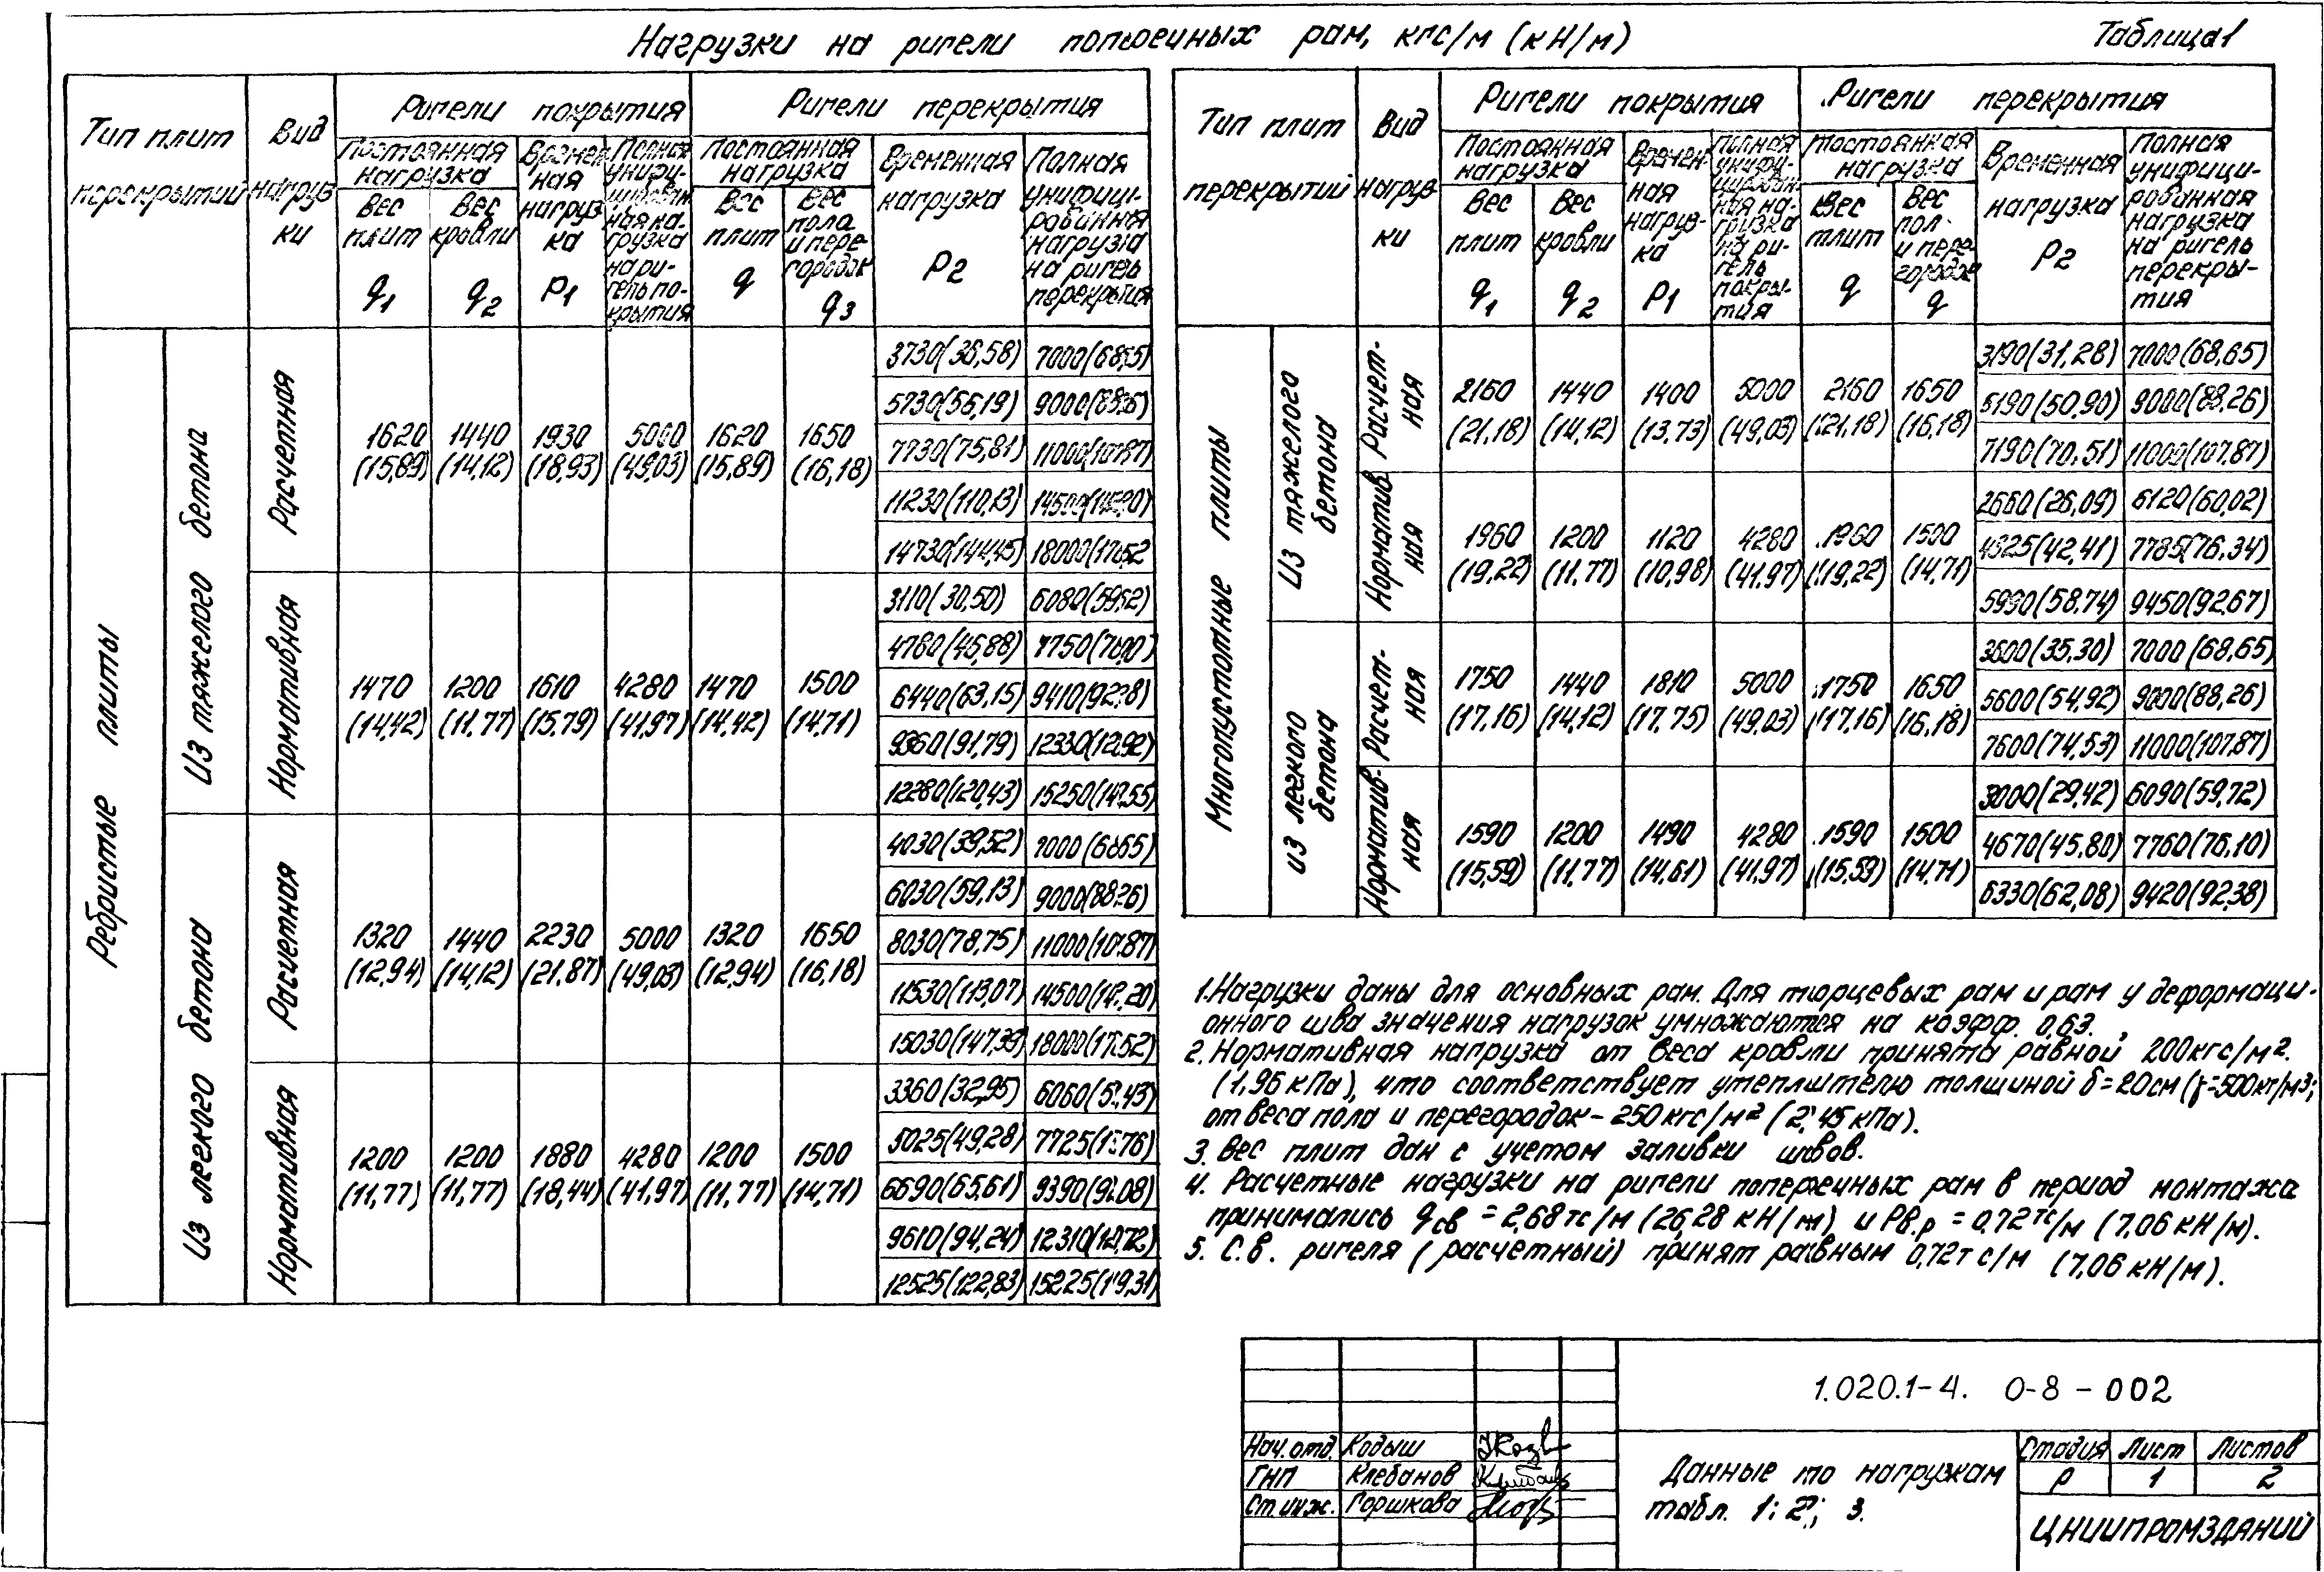 Нагрузки на ригели поперечных рам, кгс/м (кН/м)
Таблица 1
Тип плит перекрытий
Вид нагрузки
Ригели покрытия
Ригели перекрытия
Постоянная нагрузка
Временная нагрузка P1
Полная унифицированная нагрузка на ригель покрытия
Постоянная нагрузка
Временная нагрузка P2
Полная унифицированная нагрузка на ригель перекрытия
Вес плит q1
Вес кровли q2
Вес плит q
Вес пола и перегородок q3
Ребристые плиты
Из тяжелого бетона
Расчетная
1620 (15,89)
1440 (14,12)
1930 (18,93)
5000 (49,03)
1620 (15,89)
1650 (16,18)
3730(36,58) 7000(68,65)
5730(56,19) 9000(88,26)
7730(75,81) 11000(107,87)
11230(110,13) 14500
14730(144,45) 18000
Нормативная
1470 (14,42)
1200 (11,77)
1610 (15,79)
4280 (41,97)
1470 (14,42)
1500 (14,71)
3110(30,50) 6080
4760(45,88) 7750
6440(63,15) 9410
9360(91,79) 12330
12280(120,43) 15250
Из легкого бетона
Расчетная
1320 (12,94)
1440 (14,12)
2230 (21,87)
5000 (49,03)
1320 (12,94)
1650 (16,18)
4030(39,52) 7000(68,65)
6030(59,13) 9000(88,26)
8030(78,75) 11000(107,87)
11530(113,07) 14500
15030(147,39) 18000
Нормативная
1200 (11,77)
1200 (11,77)
1880 (18,44)
4280 (41,97)
1200 (11,77)
1500 (14,71)
3360(32,95) 6060
5025(49,28) 7725
6690(65,61) 9390
9610(94,24) 12310
12525(122,83) 15225
Тип плит перекрытий
Вид нагрузки
Ригели покрытия
Ригели перекрытия
Постоянная нагрузка
Временная нагрузка P1
Полная унифицированная нагрузка на ригель покрытия
Постоянная нагрузка
Временная нагрузка P2
Полная унифицированная нагрузка на ригель перекрытия
Вес плит q1
Вес кровли q2
Вес плит q
Вес пол. и перегородок q
Многопустотные плиты
Из тяжелого бетона
Расчетная
2160 (21,18)
1440 (14,12)
1400 (13,73)
5000 (49,03)
2160 (21,18)
1650 (16,18)
3190(31,28) 7000(68,65)
5190(50,90) 9000(88,26)
7190(70,51) 11000(107,87)
Нормативная
1960 (19,22)
1200 (11,77)
1120 (10,98)
4280 (41,97)
1960 (19,22)
1500 (14,71)
2660(26,09) 6120(60,02)
4325(42,41) 7785(76,34)
5990(58,74) 9450(92,67)
Из легкого бетона
Расчетная
1750 (17,16)
1440 (14,12)
1810 (17,75)
5000 (49,03)
1750 (17,16)
1650 (16,18)
3600(35,30) 7000(68,65)
5600(54,92) 9000(88,26)
7600(74,53) 11000(107,87)
Нормативная
1590 (15,59)
1200 (11,77)
1490 (14,61)
4280 (41,97)
1590 (15,59)
1500 (14,71)
3000(29,42) 6090(59,72)
4670(45,80) 7760(76,10)
6330(62,08) 9420(92,38)
1. Нагрузки даны для основных рам. Для торцевых рам и рам у деформаци-
онного шва значения нагрузок умножаются на коэфф. 0,63.
2. Нормативная нагрузка от веса кровли принята равной 200кгс/м²
(1,96 кПа), что соответствует утеплителю толщиной δ=20см (γ=500кг/м³;
от веса пола и перегородок – 250 кгс/м² (2,45 кПа).
3. Вес плит дан с учетом заливки швов.
4. Расчетные нагрузки на ригели поперечных рам в период монтажа
принимались qсв = 2,68 тс/м (26,28 кН/м) и Pв.р = 0,72 тс/м (7,06 кН/м).
5. С.в. ригеля (расчетный) принят равным 0,72т с/м (7,06 кН/м).
1.020.1-4. 0-8-002
Нач.отд. Кодыш
ГИП Клебанов
Ст.инж. Горшкова
Данные по нагрузкам
табл. 1; 2; 3.
Стадия Лист Листов
Р 1 2
ЦНИИПРОМЗДАНИЙ